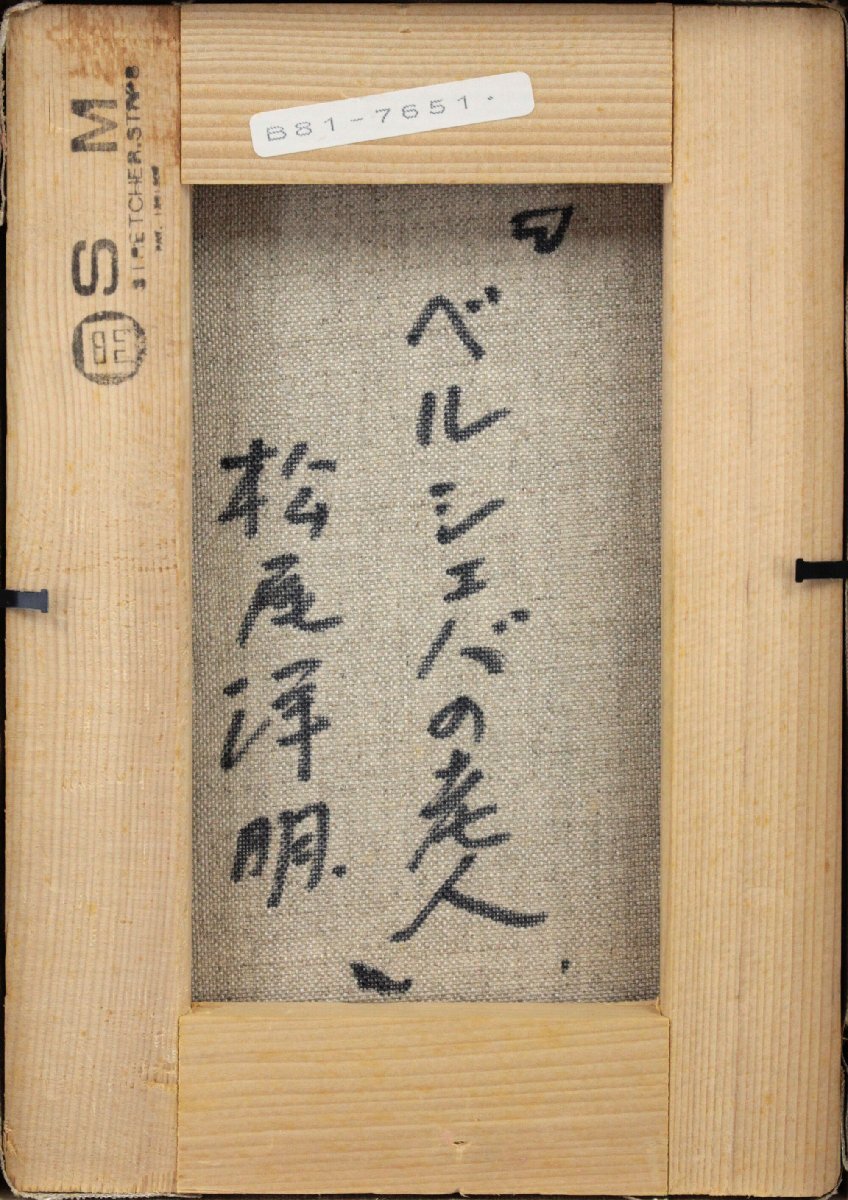 B81-7651.
「ベルシェバの老人」
松尾洋明.
S M
STRETCHER.STRIPS